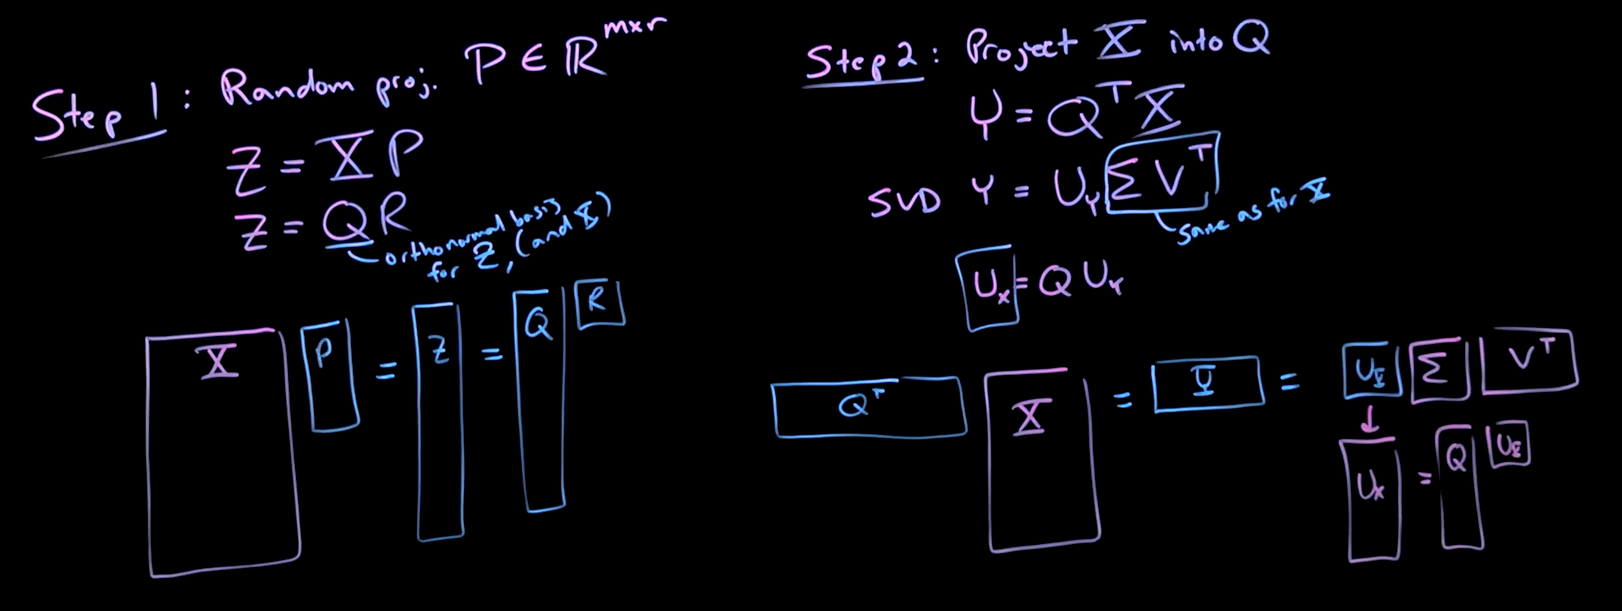 Step 1: Random proj. P ∈ ℝ^{m×r}
Z = X P
Z = Q R
orthonormal basis
for Z, (and X)
X P = Z = Q R
Step 2: Project X into Q
Y = Q^T X
SVD Y = U_Y Σ V^T
same as for X
U_X = Q U_Y
Q^T X = Y = U_Y Σ V^T
↓
U_X = Q U_Y